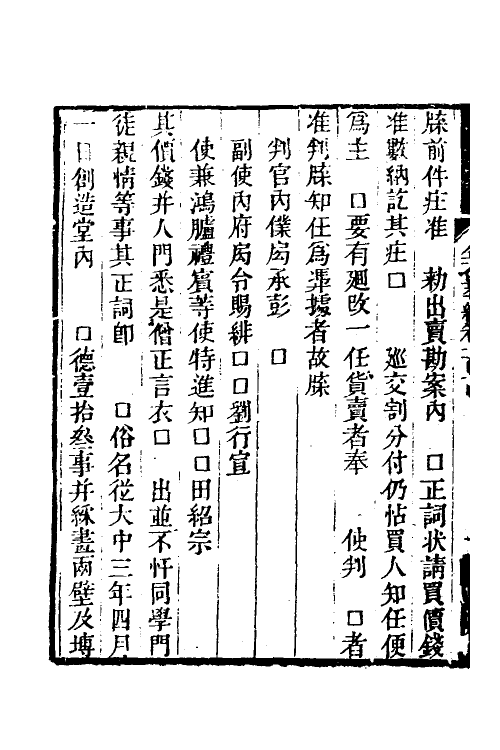 牒前件庄准　勅出賣勘案內　□正詞狀請買價錢
准數納訖其庄□　巡交割分付仍帖買人知任便
爲主　□要有廻改一任貨賣者奉　使判　□者
准判牒知任爲凴據者故牒
判官內僕局丞彭　□
副使內府局令賜緋□□劉行宣
使兼鴻臚禮賓等使特進知□□田紹宗
其價錢并人門悉是僧正言衣□　出並不忓同學門
徒親情等事其正詞卽　□俗名從大中三年四月
一日創造堂內　□德壹拾叁事并綵畫兩壁及塼